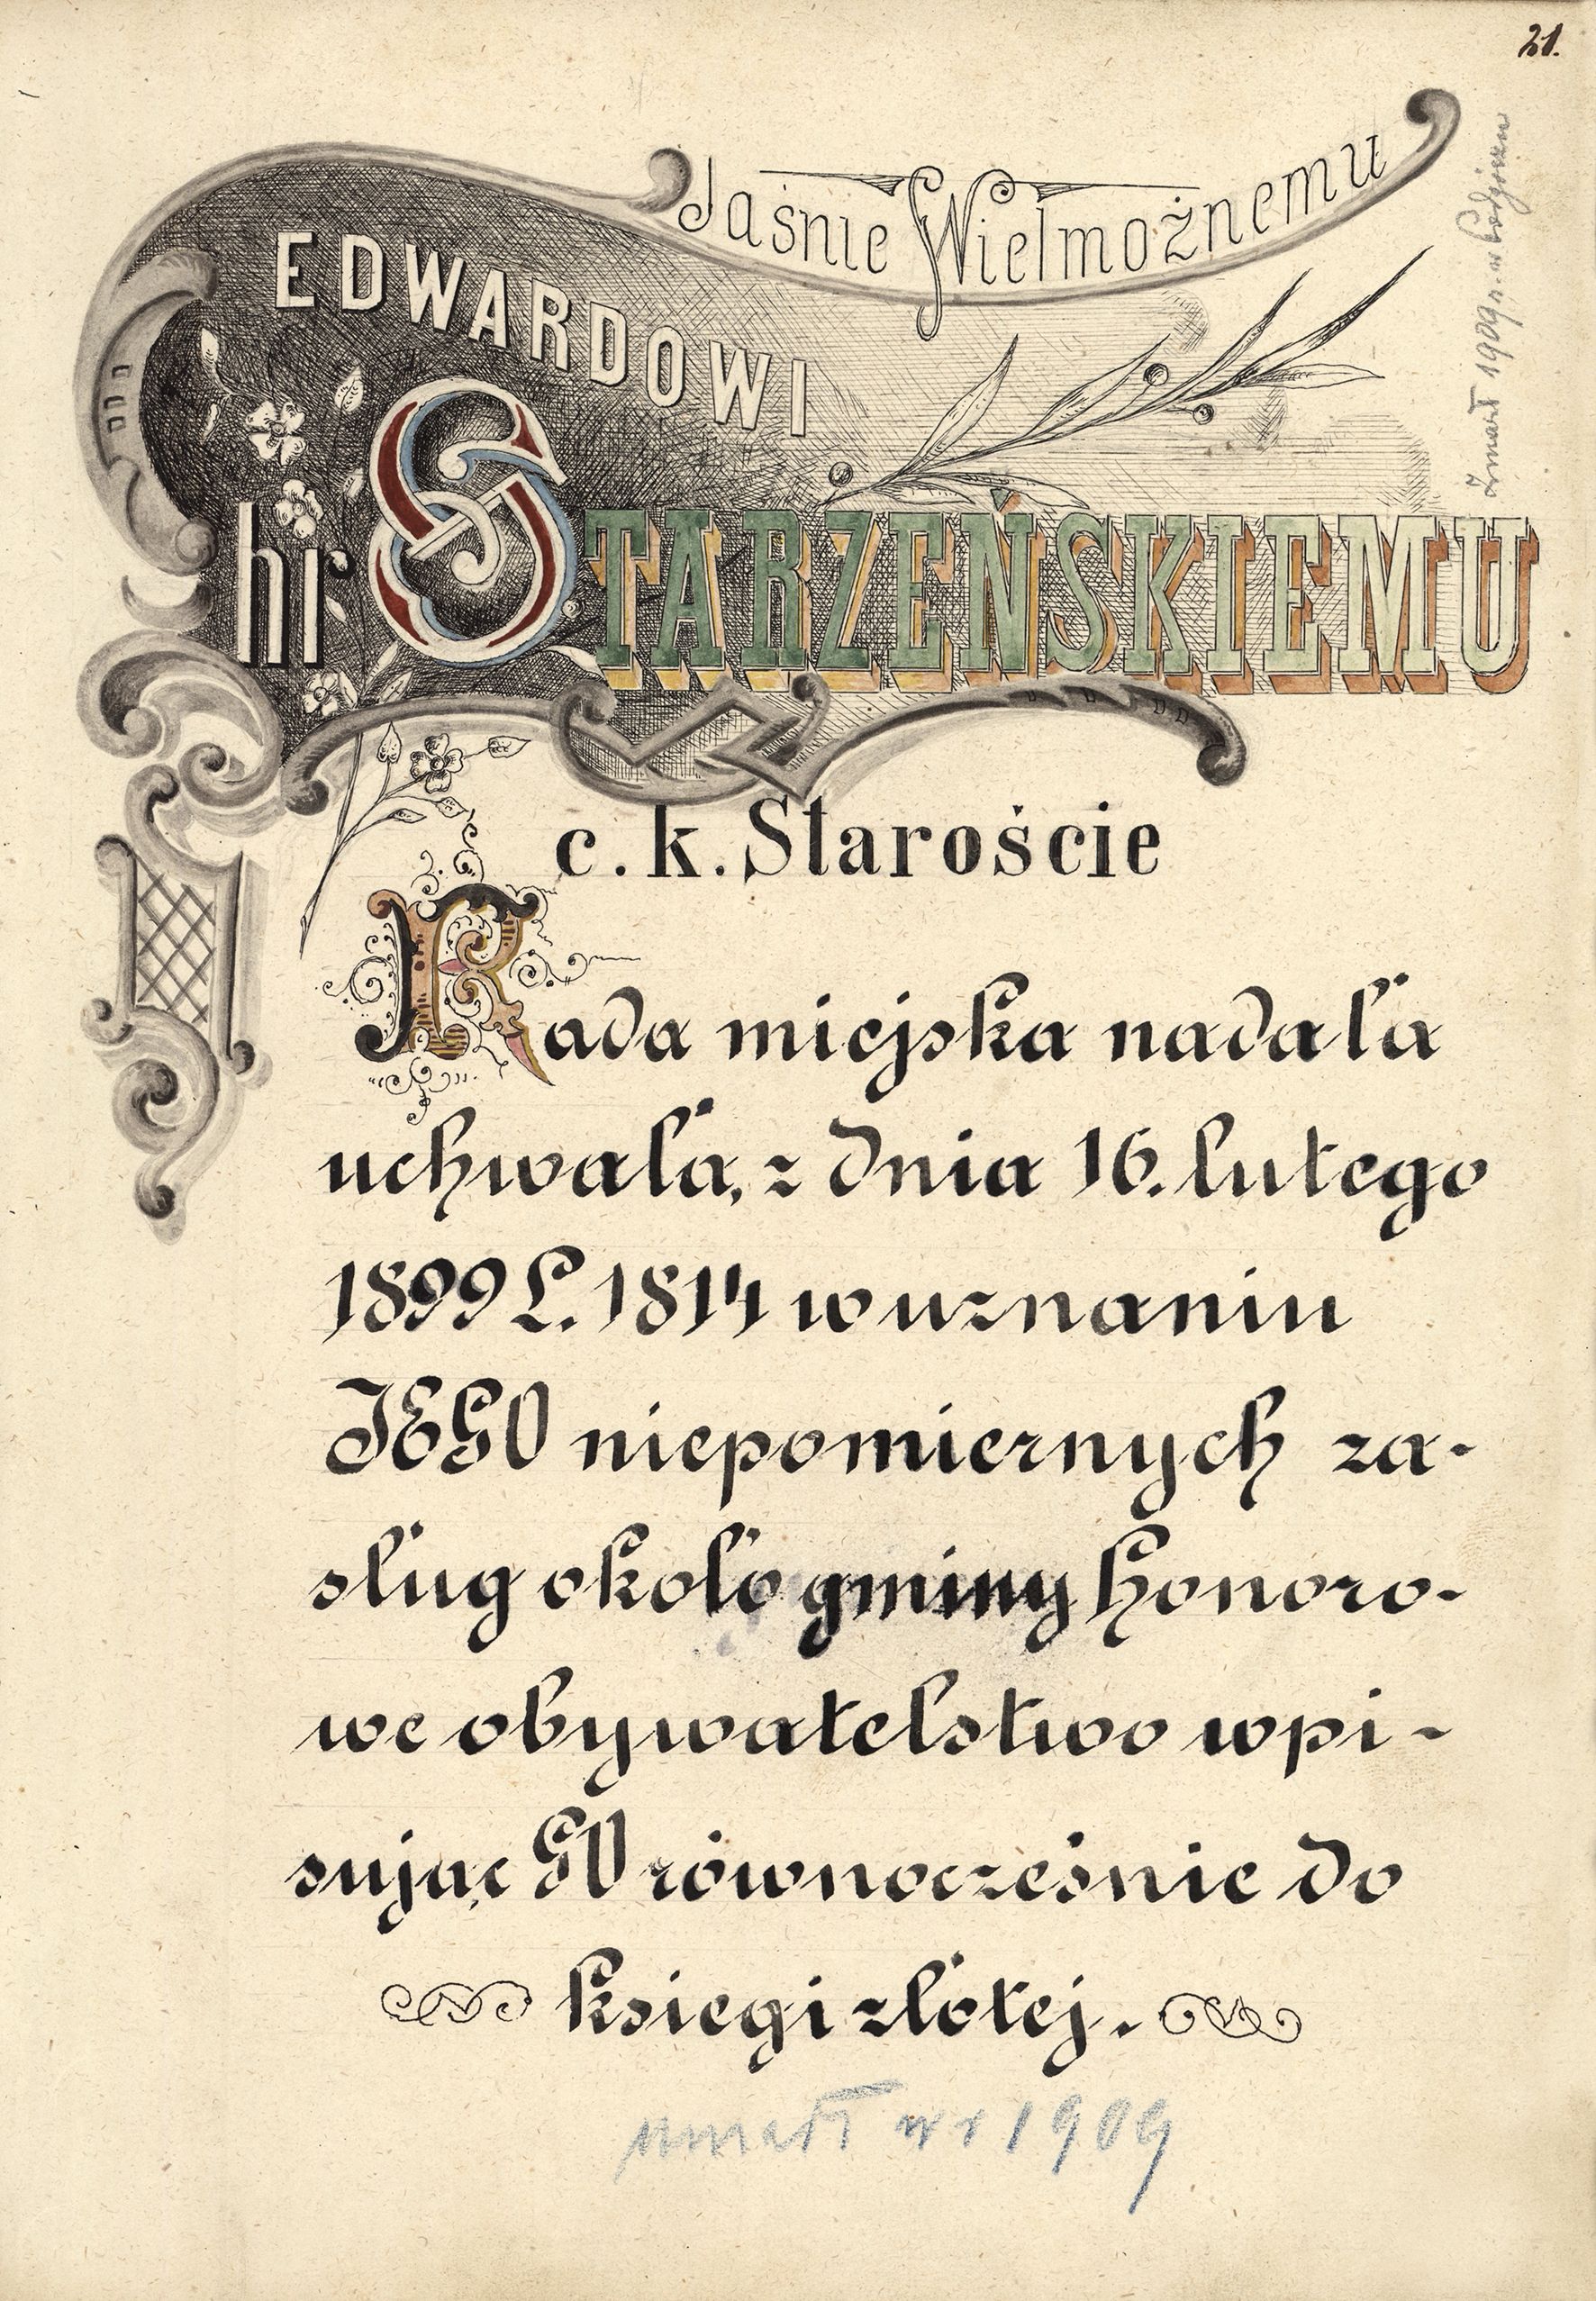 21.
Jaśnie Wielmożnemu
EDWARDOWI
hr STARZEŃSKIEMU
c. k. Staroście
Rada miejska nadała
uchwałą z dnia 16. lutego
1899 L. 1814 w uznaniu
JEGO niepomiernych za-
sług około gminy honoro-
we obywatelstwo wpi-
sując GO równocześnie do
księgi złotej.
umarł w r 1909
Zmarł 1909 r. w